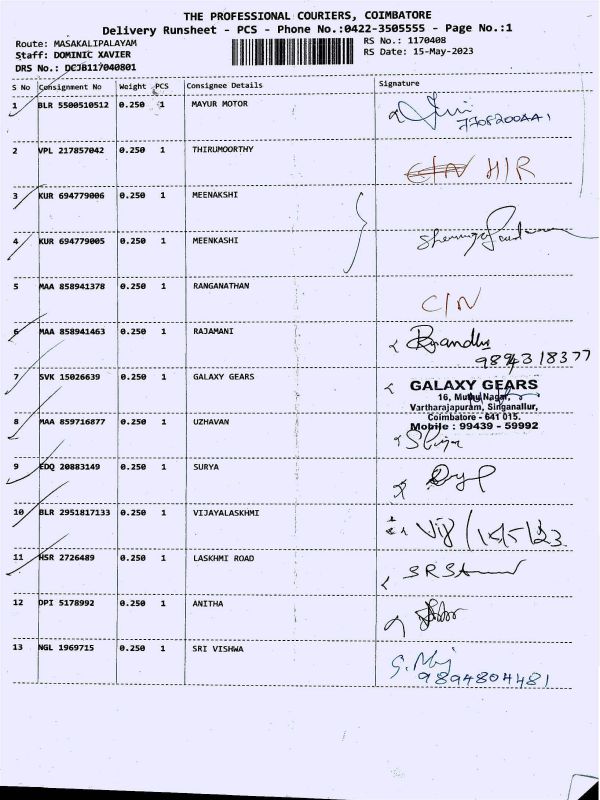 THE PROFESSIONAL COURIERS, COIMBATORE
Delivery Runsheet - PCS - Phone No.:0422-3505555 - Page No.:1
Route: MASAKALIPALAYAM
RS No.: 1170408
Staff: DOMINIC XAVIER
RS Date: 15-May-2023
DRS No.: DCJB117040801
S No Consignment No Weight PCS Consignee Details Signature
1 BLR 5500510512 0.250 1 MAYUR MOTOR
2 VPL 217857042 0.250 1 THIRUMOORTHY C/N H/R
3 KUR 694779006 0.250 1 MEENAKSHI
4 KUR 694779005 0.250 1 MEENKASHI
5 MAA 858941378 0.250 1 RANGANATHAN C/N
6 MAA 858941463 0.250 1 RAJAMANI
9894318377
7 SVK 15026639 0.250 1 GALAXY GEARS GALAXY GEARS
16, Muthu Nagar,
Vartharajapuram, Singanallur,
Coimbatore - 641 015.
Mobile : 99439 - 59992
8 MAA 859716877 0.250 1 UZHAVAN
9 EDQ 20883149 0.250 1 SURYA
10 BLR 2951817133 0.250 1 VIJAYALASKHMI Vij /15/5/23
11 HSR 2726489 0.250 1 LASKHMI ROAD
12 DPI 5178992 0.250 1 ANITHA
13 NGL 1969715 0.250 1 SRI VISHWA
9894804481